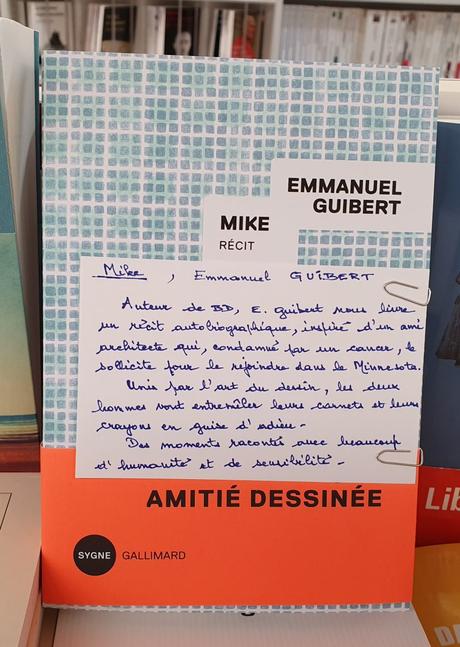 EMMANUEL
GUIBERT
MIKE
RÉCIT
Mike, Emmanuel GUIBERT
Auteur de BD, E. Guibert nous livre
un récit autobiographique, inspiré d'un ami
architecte qui, condamné par un cancer, le
sollicite pour le rejoindre dans le Minnesota.
Unis par l'art du dessin, les deux
hommes vont entremêler leurs carnets et leurs
crayons en guise d'adieu -
Des moments racontés avec beaucoup
d'humanité et de sensibilité -
AMITIÉ DESSINÉE
SYGNE GALLIMARD
Lib